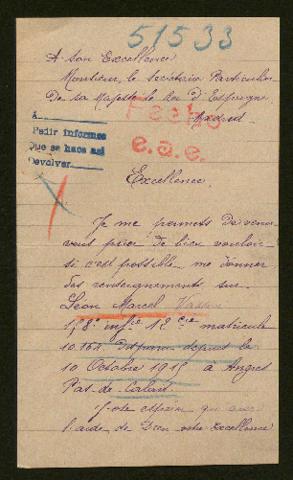 51533
A son Excellence
Monsieur, le Secrétaire Particulier
De sa Majesté le Roi d'Espagne
Madrid
Fecho
e.a.e.
A
Pedir informes
Que se hace así
Devolver
Excellence
Je me permets de venir
vous prier de bien vouloir
si c'est possible me donner
des renseignements sur
Léon Marcel
158e infie 12 cie matricule
10.164 Disparu depuis le
10 Octobre 1915 à Angres
Pas-de-Calais
J'ose espérer que avec
l'aide de Dieu votre Excellence